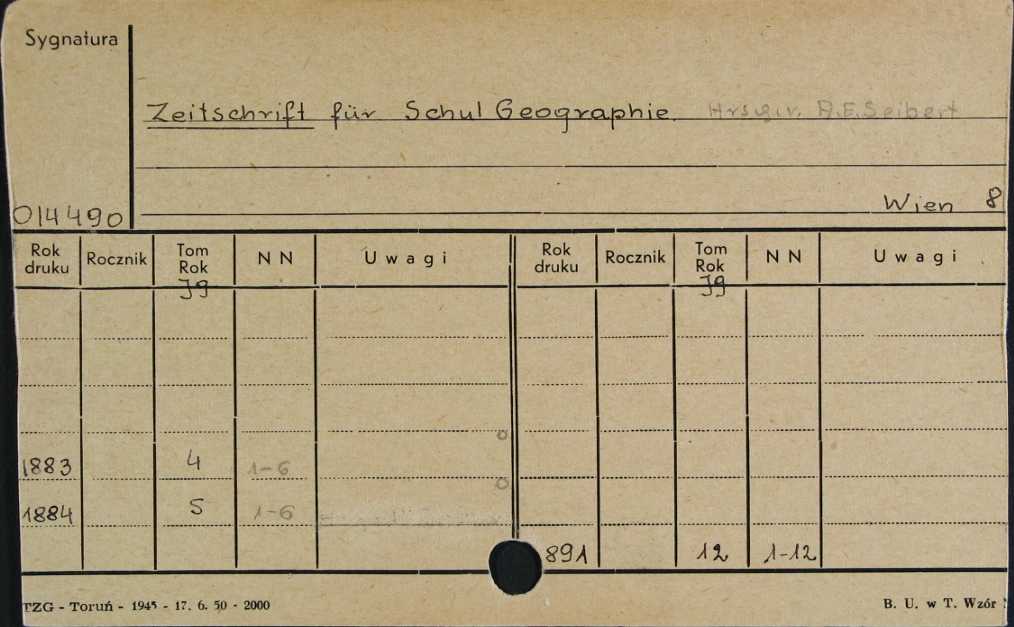 Sygnatura
Zeitschrift für Schul Geographie. Hrsgr. A.E. Seibert
014490 Wien 8
Rok druku Rocznik Tom Rok Jg NN Uwagi Rok druku Rocznik Tom Rok Jg NN Uwagi
1883 4 1-6
1884 5 1-6
891 12 1-12
TZG - Toruń - 1945 - 17. 6. 50 - 2000 B. U. w T. Wzór